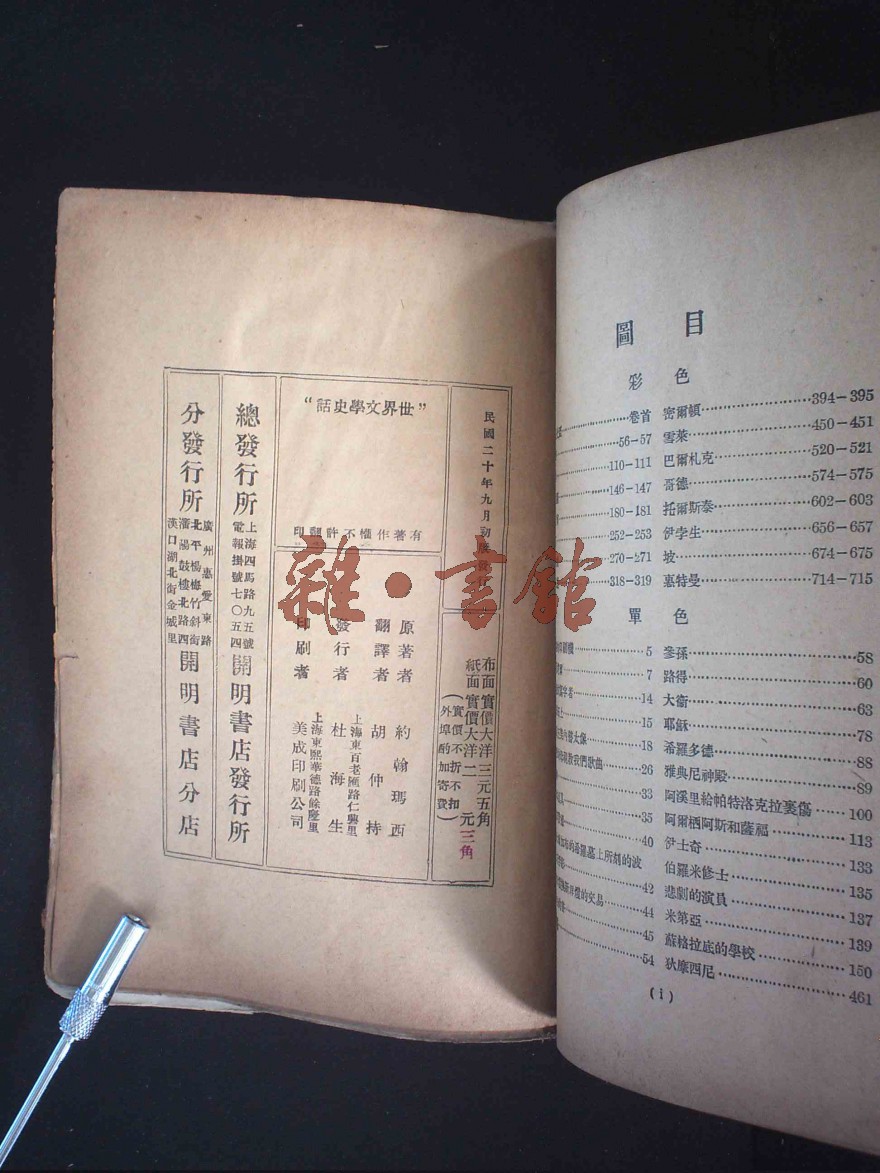 民國二十年九月初版發行
布面實價大洋三元五角
紙面實價大洋二元三角
（實價不折不扣
外埠酌加寄費）
“世界文學史話”
有著作權不許翻印
原著者 約翰瑪西
翻譯者 胡仲持
上海東百老匯路仁興里
發行者 杜海生
上海東熙華德路餘慶里
印刷者 美成印刷公司
總發行所 上海四馬路九五號
電報掛號七〇五四 開明書店發行所
分發行所 廣州惠愛東路
北平楊梅竹斜街
瀋陽鼓樓北路西
漢口湖北街金城里 開明書店分店
雜·書館
圖目
彩色
卷首
56—57
110—111
146—147
180—181
252—253
270—271
318—319
密爾頓 394—395
雪萊 450—451
巴爾札克 520—521
哥德 574—575
托爾斯泰 602—603
伊孛生 656—657
坡 674—675
惠特曼 714—715
單色
5
7
14
15
18
歌曲 26
33
35
40
墓上所刻的波
42
的交易 44
45
54
參孫 58
路得 60
大衞 63
耶穌 78
希羅多德 88
雅典尼神殿 89
阿溪里給帕特洛克拉裹傷 100
阿爾栖阿斯和薩福 113
伊士奇 133
伯羅米修士 135
悲劇的演員 137
米第亞 139
蘇格拉底的學校 150
狄摩西尼 461
(i)